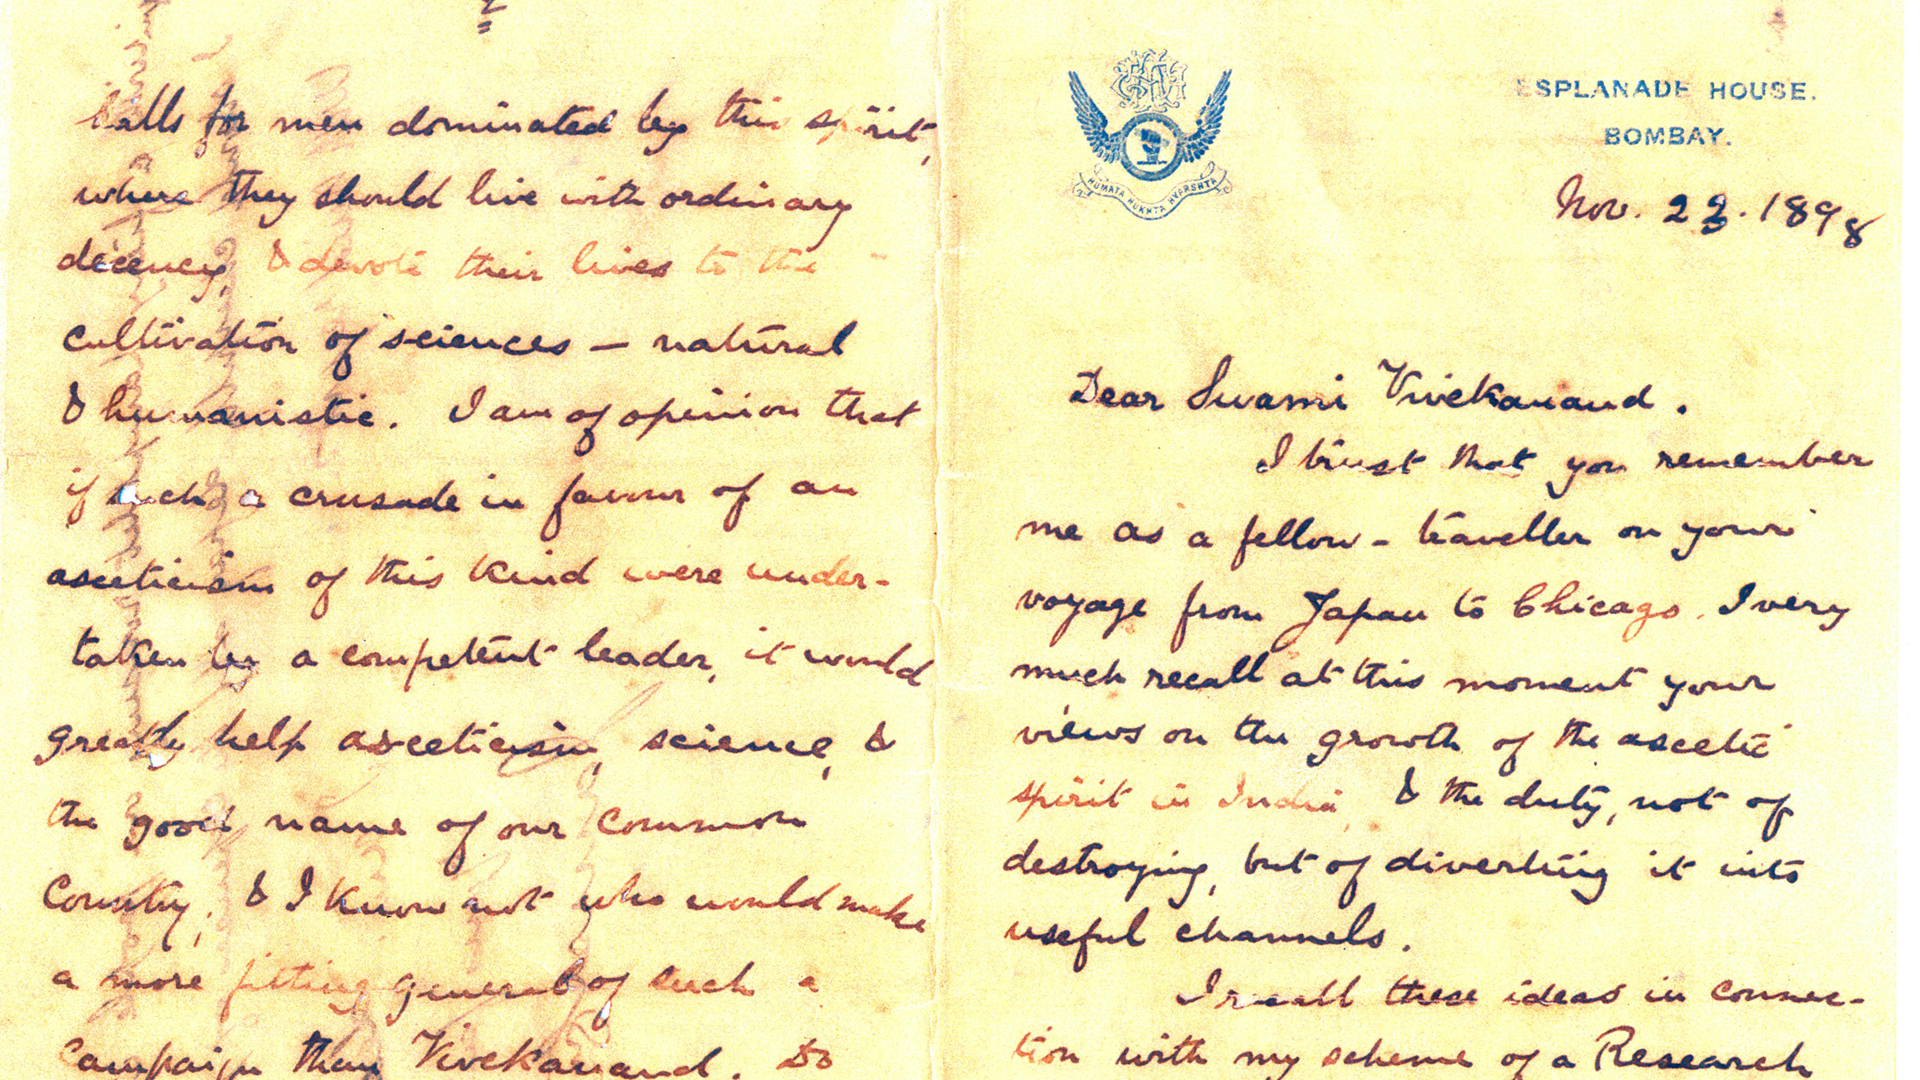 HUMATA HUKHTA HVARSHTA
ESPLANADE HOUSE.
BOMBAY.
Nov. 23. 1898
Dear Swami Vivekanand.
I trust that you remember
me as a fellow-traveller on your
voyage from Japan to Chicago. I very
much recall at this moment your
views on the growth of the ascetic
spirit in India, & the duty, not of
destroying, but of diverting it into
useful channels.
I recall these ideas in connec-
tion with my scheme of a Research
2
halls for men dominated by this spirit,
where they should live with ordinary
decency, & devote their lives to the
cultivation of sciences – natural
& humanistic. I am of opinion that
if such a crusade in favour of an
asceticism of this kind were under-
taken by a competent leader, it would
greatly help asceticism, science, &
the good name of our common
country; & I know not who would make
a more fitting general of such a
campaign than Vivekanand. Do